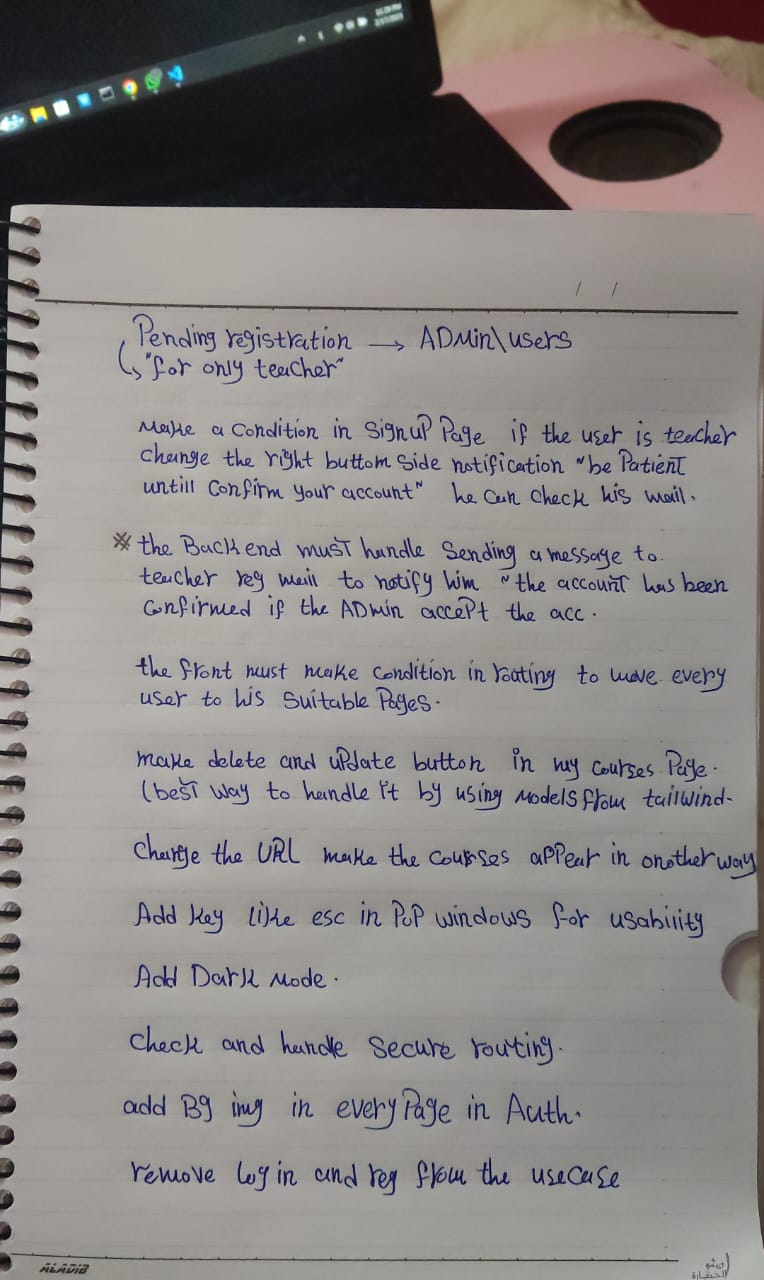 / /
Pending registration → ADMin\users
↳ "for only teacher"
Make a Condition in Signup Page if the user is teacher
change the right buttom side notification "be Patient
untill Confirm your account" he can check his mail.
※ the Backend must handle Sending a message to
teacher reg mail to notify him "the account has been
Confirmed if the ADmin accept the acc.
the front must make condition in routing to move every
user to his Suitable Pages.
make delete and update button in my courses Page.
(best way to handle it by using models from tailwind-
Change the URL make the courses appear in onother way
Add key like esc in PoP windows for usability
Add Dark Mode.
check and handle Secure routing.
add Bg img in every Page in Auth.
remove log in and reg from the usecase
ALADIB